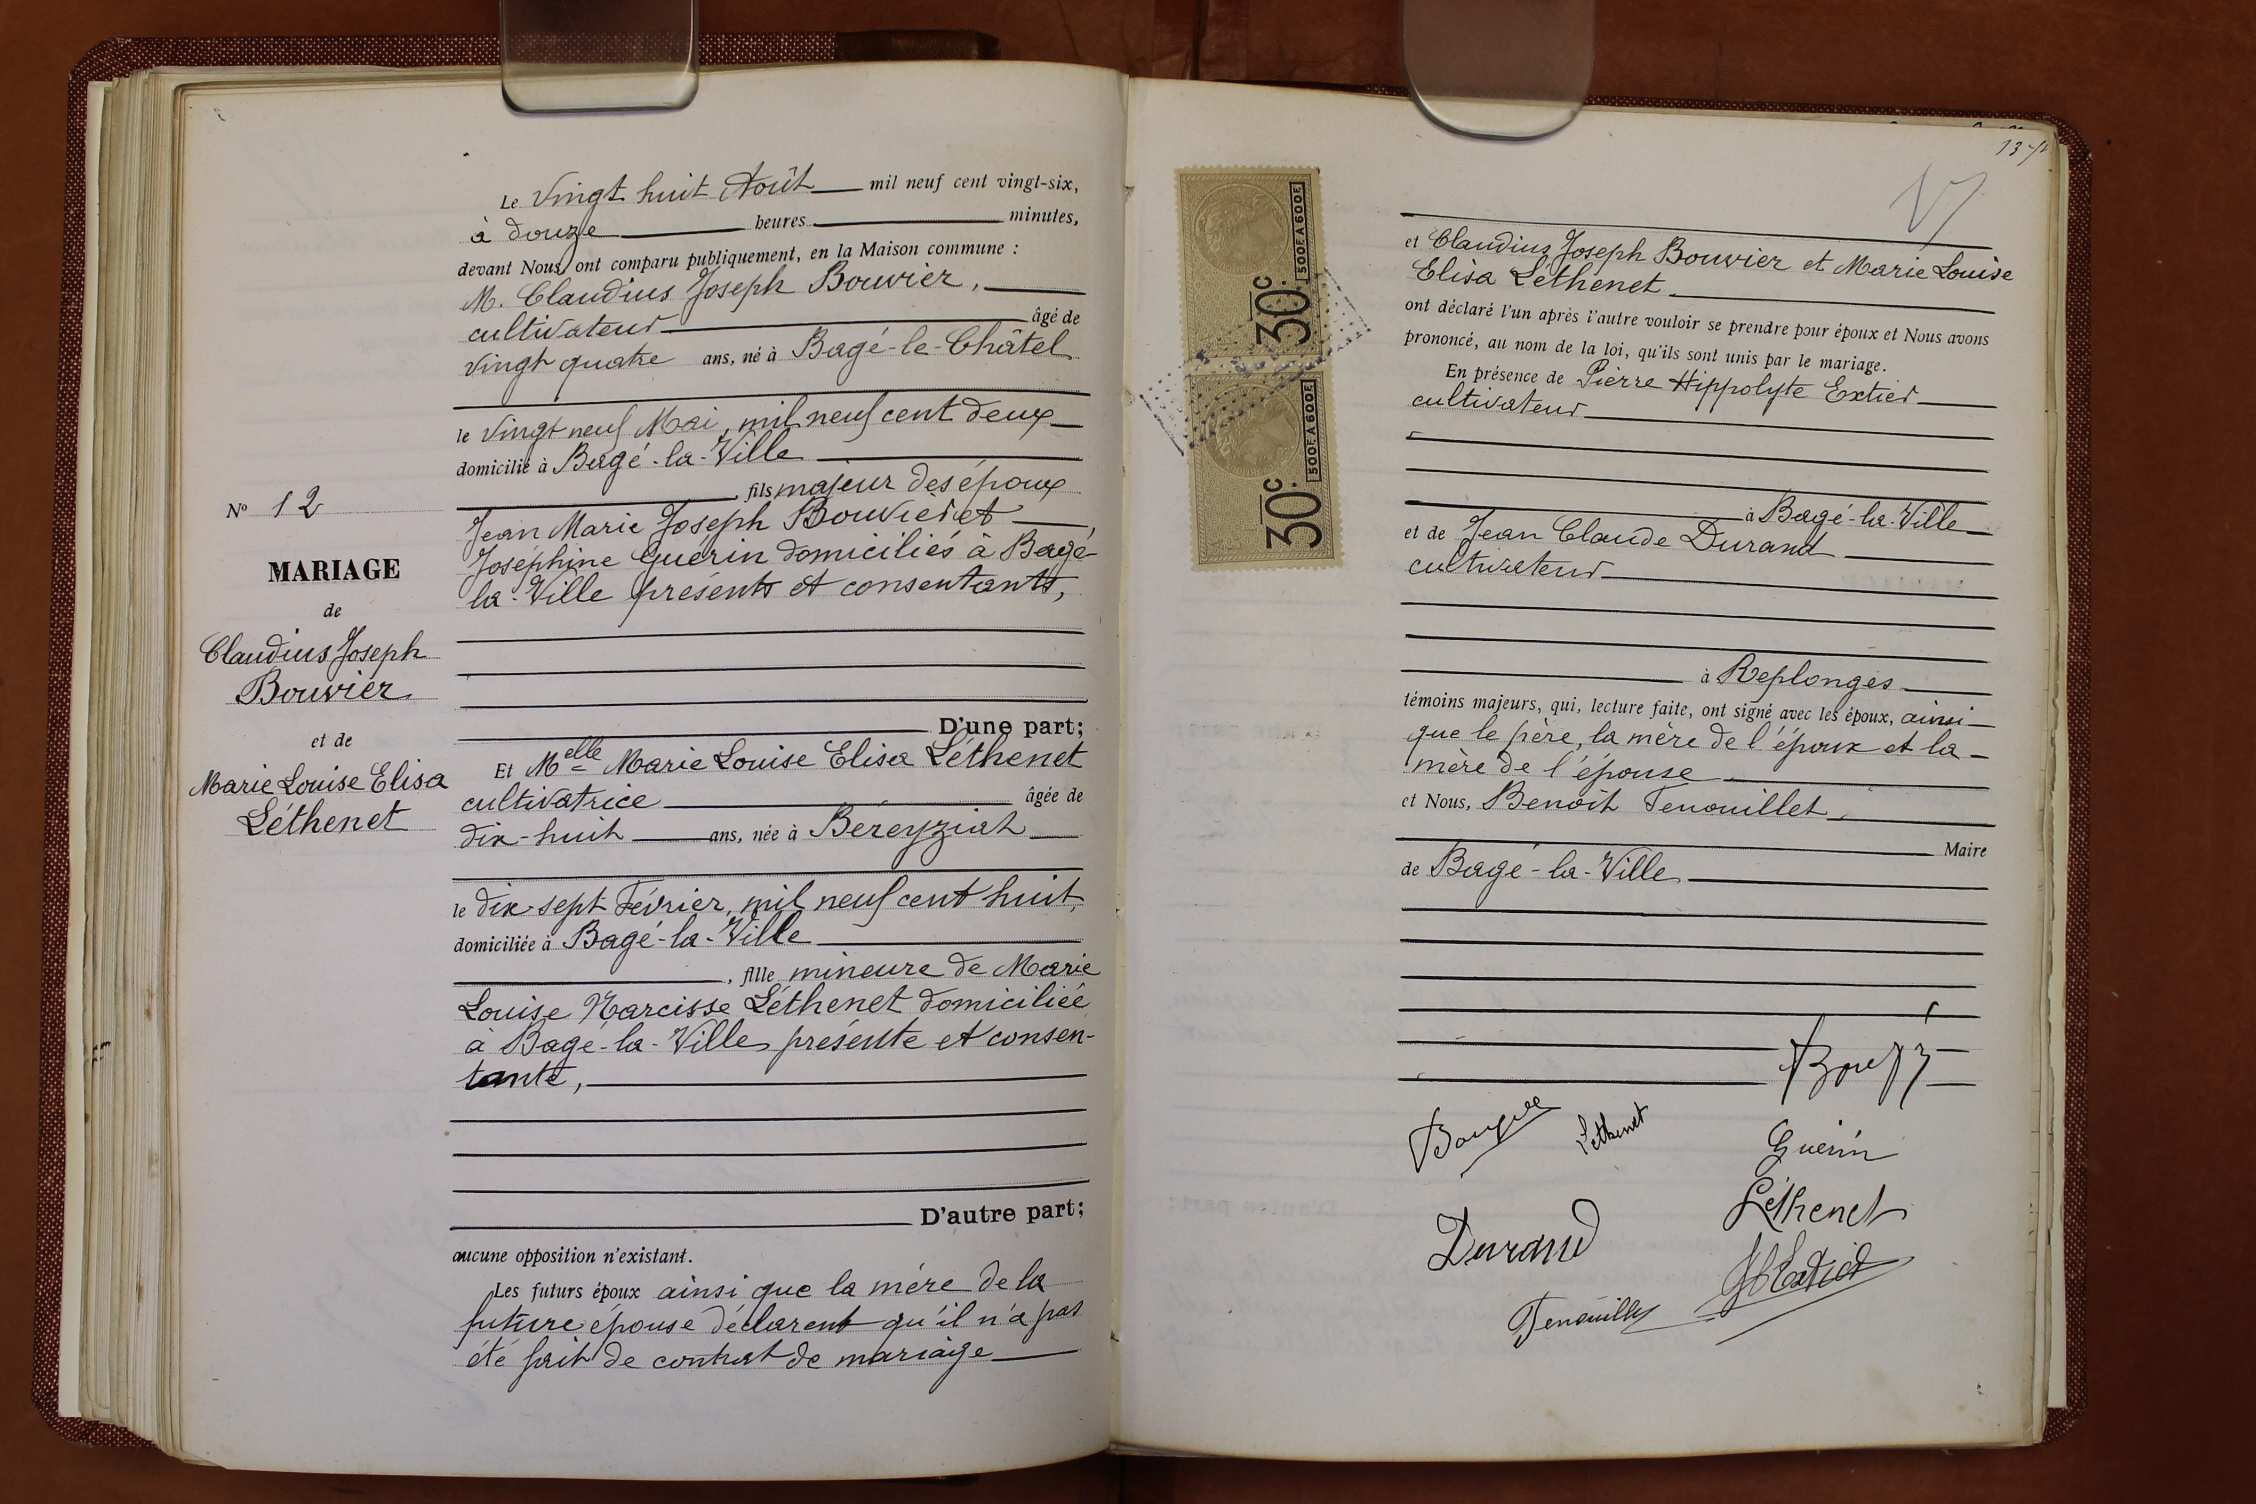 Le Vingt huit Août mil neuf cent vingt-six,
à douze heures minutes,
devant Nous ont comparu publiquement, en la Maison commune :
M. Claudius Joseph Bouvier,
cultivateur âgé de
vingt quatre ans, né à Bagé-le-Châtel
le vingt neuf Mai, mil neuf cent deux
domicilié à Bagé-la-Ville
, fils majeur des époux
Jean Marie Joseph Bouvier et
Joséphine Guérin domiciliés à Bagé-
la-Ville présents et consentants,
D'une part;
Et Melle Marie Louise Elisa Léthenet
cultivatrice âgée de
dix-huit ans, née à Béreyziat
le dix-sept Février, mil neuf cent huit,
domiciliée à Bagé-la-Ville
, fille mineure de Marie
Louise Narcisse Léthenet domiciliée
à Bagé-la-Ville présente et consen-
tante,
D'autre part;
aucune opposition n'existant.
Les futurs époux ainsi que la mère de la
future épouse déclarent qu'il n'a pas
été fait de contrat de mariage
N° 12
MARIAGE
de
Claudius Joseph
Bouvier
et de
Marie Louise Elisa
Léthenet
30c. 500F A 600F
30c. 500F A 600F
et Claudius Joseph Bouvier et Marie Louise
Elisa Léthenet
ont déclaré l'un après l'autre vouloir se prendre pour époux et Nous avons
prononcé, au nom de la loi, qu'ils sont unis par le mariage.
En présence de Pierre Hippolyte Extier
cultivateur
à Bagé-la-Ville
et de Jean Claude Durand
cultivateur
à Replonges
témoins majeurs, qui, lecture faite, ont signé avec les époux, ainsi
que le père, la mère de l'époux et la
mère de l'épouse
et Nous, Benoît Fenouillet,
Maire
de Bagé-la-Ville
Lethenet
Guérin
Durand
Léthenet
Fenouillet